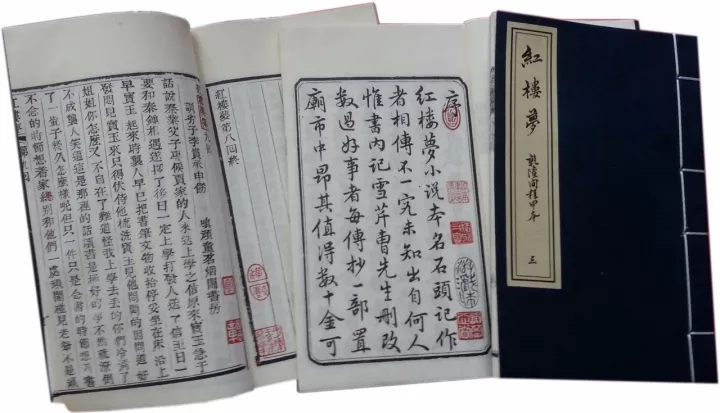 紅樓夢
乾隆間程甲本
三
序
紅樓夢小説本名石頭記作
者相傳不一究未知出自何人
惟書內記雪芹曹先生刪改
數過好事者每傳抄一部置
廟市中昻其值得數十金可
紅樓夢第八回終
訓劣子李貴承申飭
嗔頑童茗烟鬧書房
話說秦業父子專候賈家的人來送上學之信原來寶玉急于
要和秦鍾相遇遂擇了後日一定上學打發人送了信至日一
早寶玉起來時襲人早已把書筆文物收拾停妥坐在床沿上
發悶見寶玉來只得伏侍他梳洗寶玉見他悶悶的因問道好
姐姐你怎麼又不自在了難道怪我上學去丟的你們冷清了
不成襲人笑道這是那裡的話讀書是極好的事不然就潦倒
一輩子終久怎麼樣呢但只一件只是念書的時節想着書
不念的時節想着家總別和他們一處頑鬧碰見老爺不是